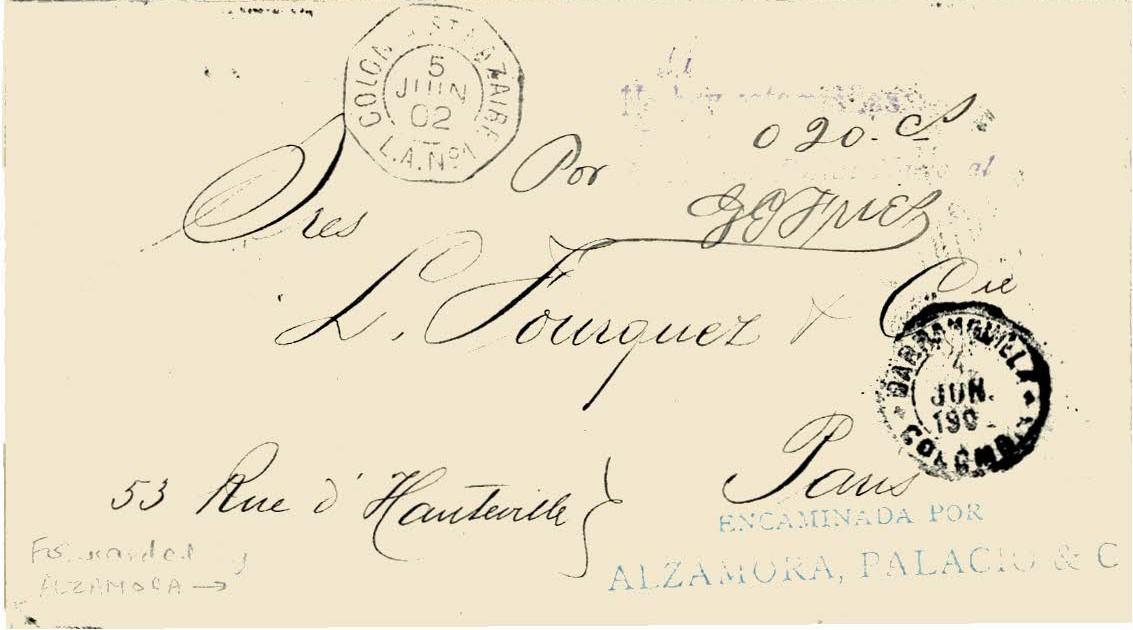 COLON A ST NAZAIRE
5
JUIN
02
L.A. Nº1
020. Cs
Por
Sres
L. Fourquez & Cie
BARRANQUILLA
4
JUN.
190
COLOMBIA
Paris
53 Rue d'Hauteville
ENCAMINADA POR
ALZAMORA, PALACIO & C
Forwarded by
ALZAMORA →